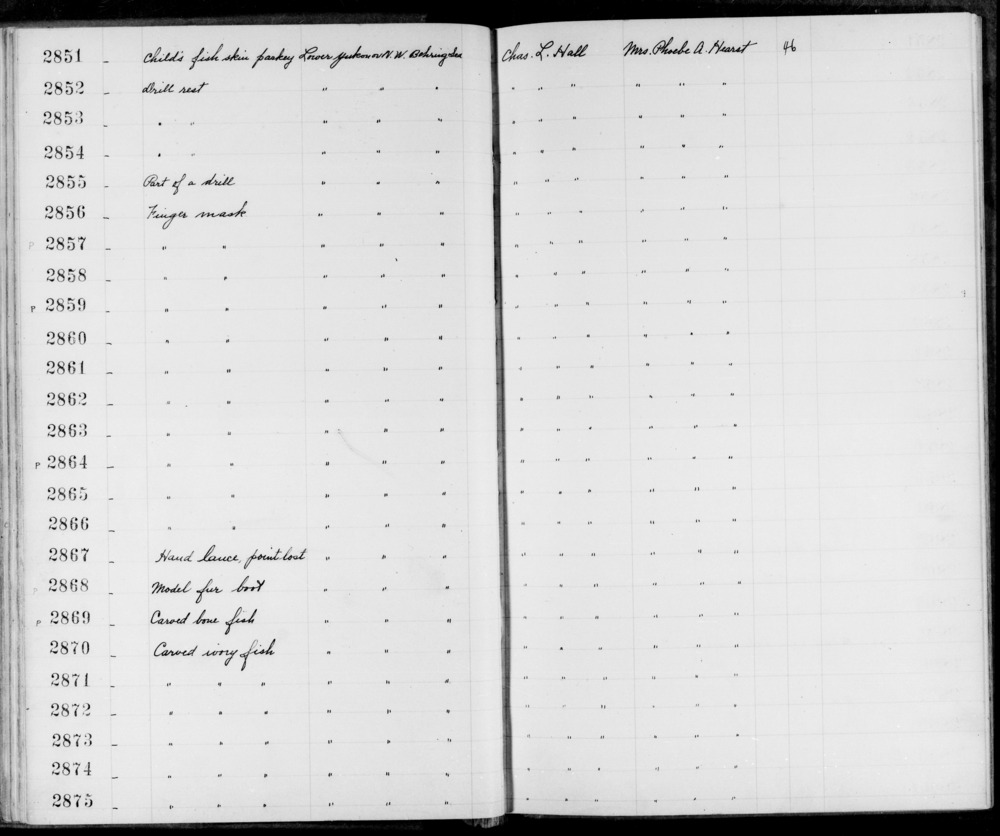 2851 – Child's fish skin parkey Lower Yukon or N.W. Behring Sea Chas. L. Hall Mrs. Phoebe A. Hearst 46
2852 – Drill rest " " " " " " " " "
2853 – " " " " " " " " " " "
2854 – " " " " " " " " " " "
2855 – Part of a drill " " " " " " " " "
2856 – Finger mask " " " " " " " " "
P 2857 – " " " " " " " " " " "
2858 – " " " " " " " " " " "
P 2859 – " " " " " " " " " " "
2860 – " " " " " " " " " " "
2861 – " " " " " " " " " " "
2862 – " " " " " " " " " " "
2863 – " " " " " " " " " " "
P 2864 – " " " " " " " " " " "
2865 – " " " " " " " " " " "
2866 – " " " " " " " " " " "
2867 – Hand lance, point lost " " " " " " " " "
2868 – Model fur boot " " " " " " " " "
P 2869 – Carved bone fish " " " " " " " " "
2870 – Carved ivory fish " " " " " " " " "
2871 – " " " " " " " " " " " "
2872 – " " " " " " " " " " " "
2873 – " " " " " " " " " " " "
2874 – " " " " " " " " " " " "
2875 – " " " " " " " " " " " "